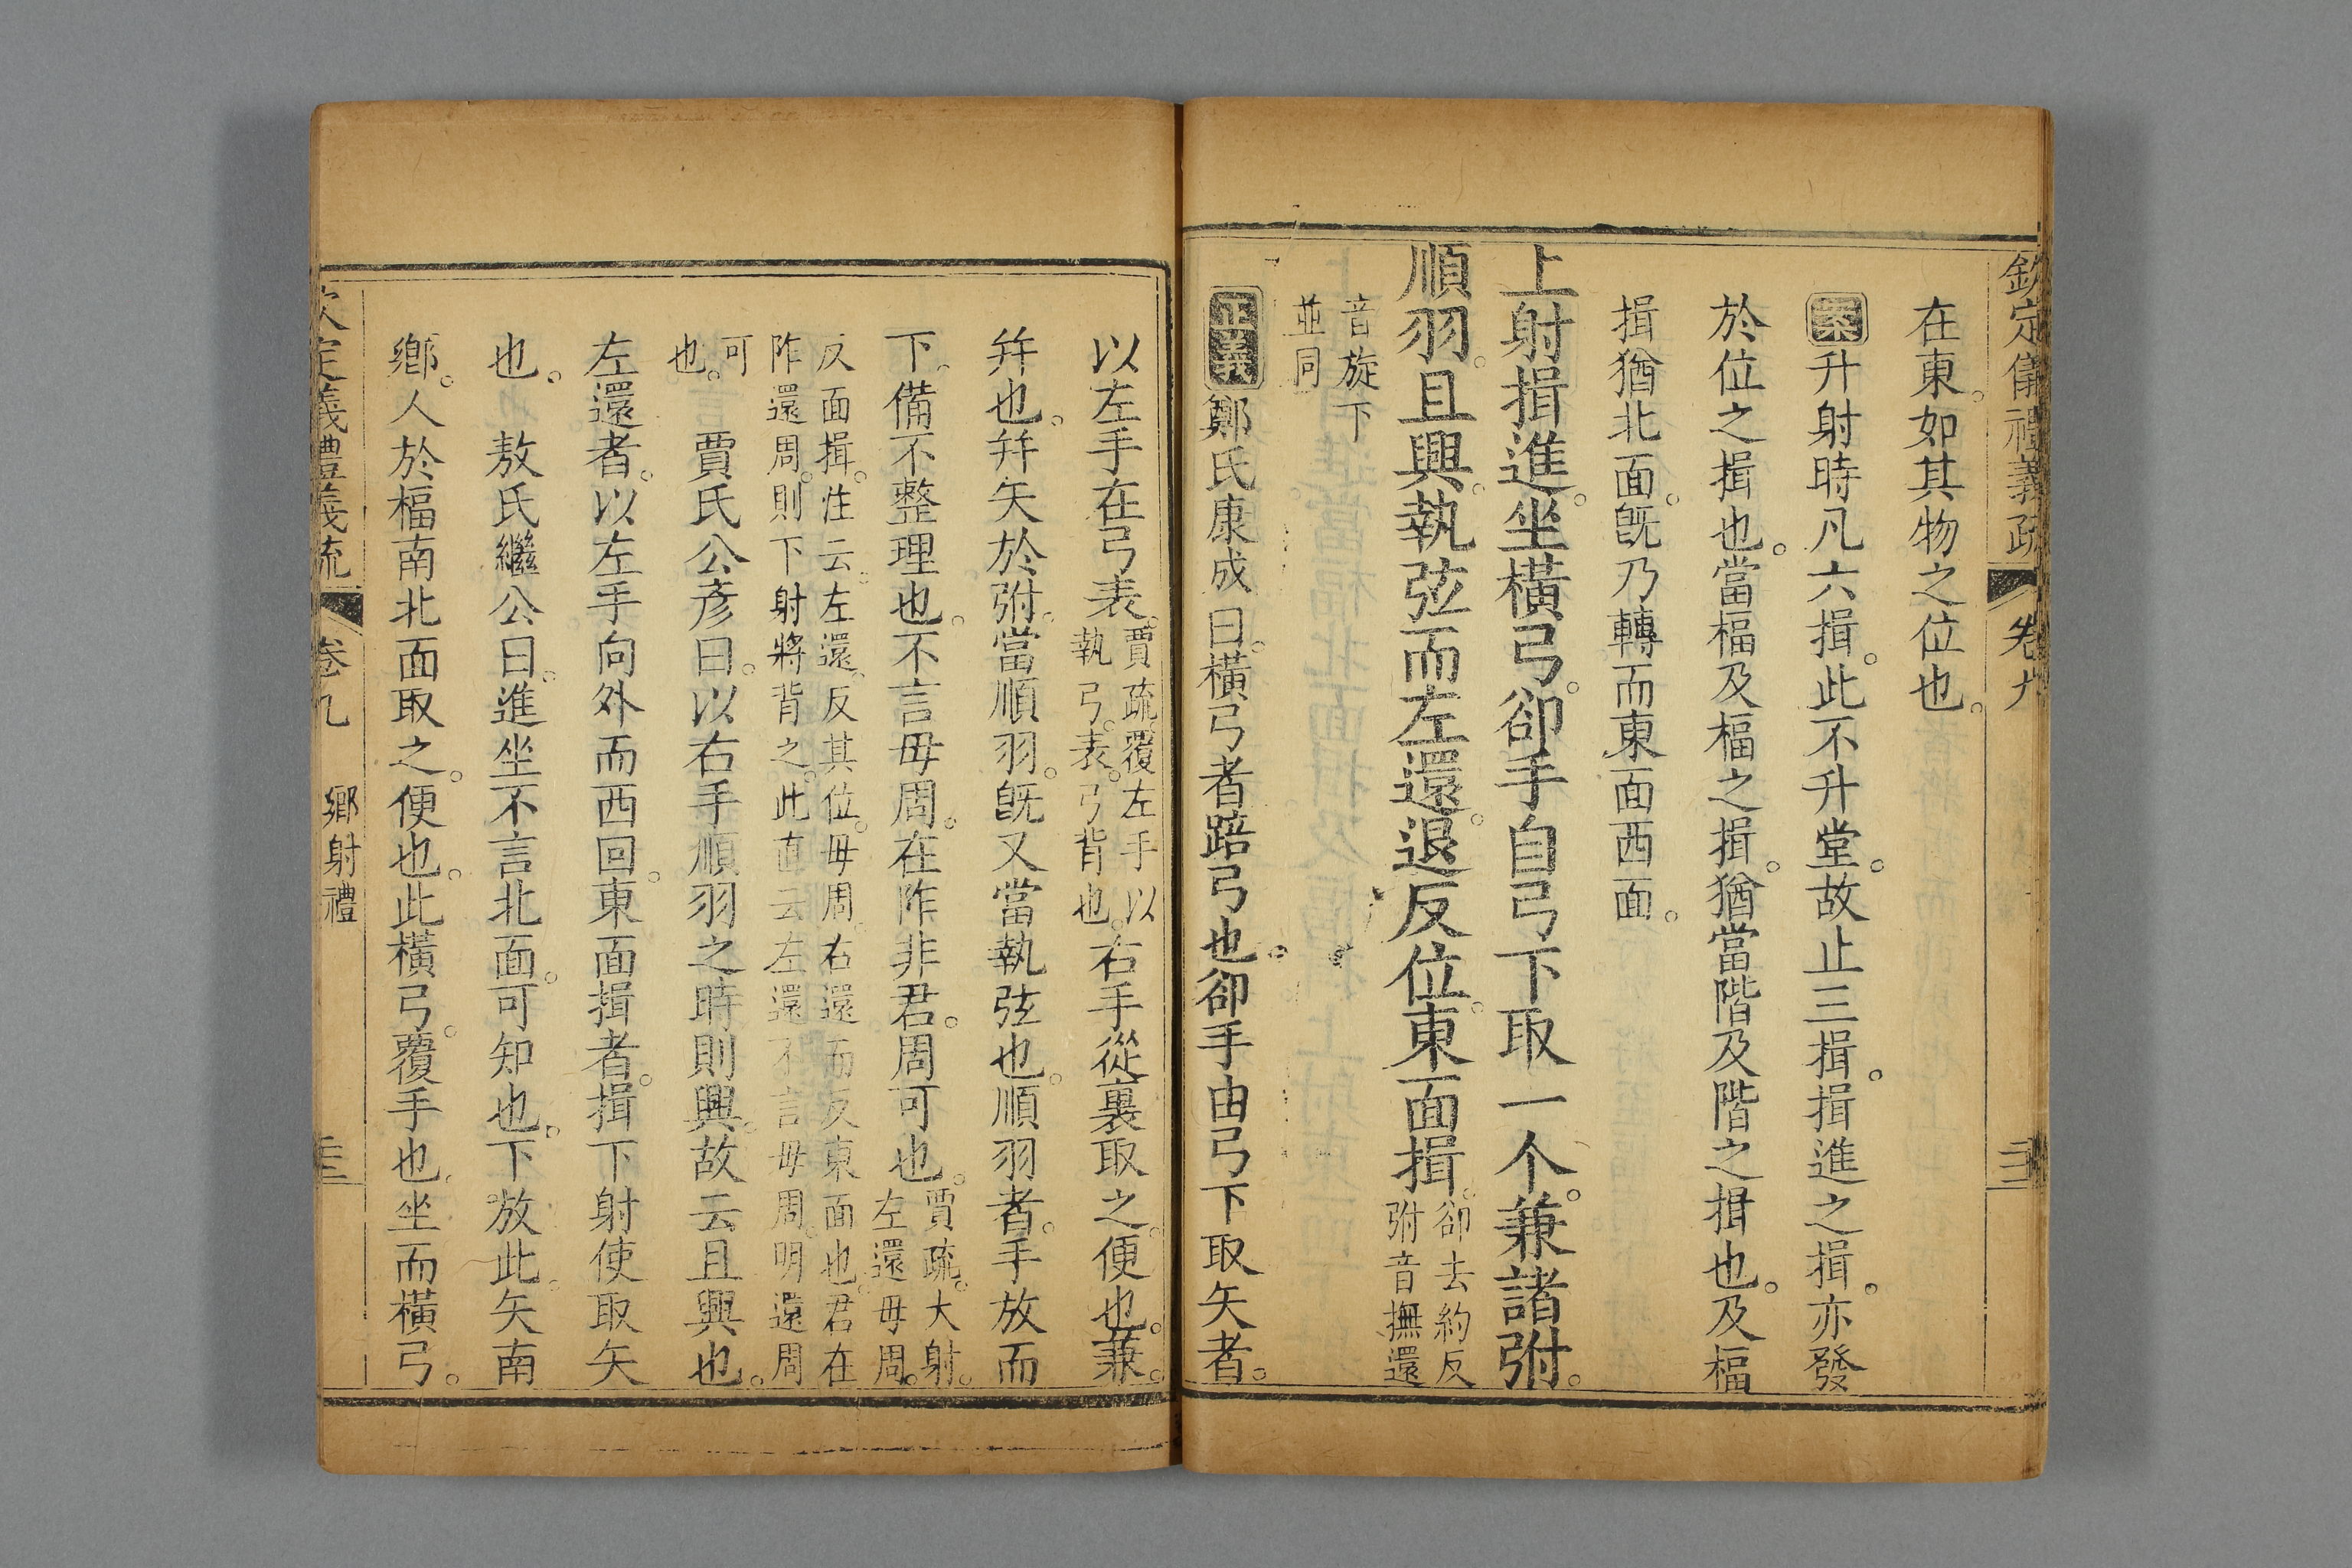 欽定儀禮義疏 卷九 三
在東。如其物之位也。
案升射時凡六揖。此不升堂。故止三揖。揖進之揖。亦發
於位之揖也。當楅及楅之揖。猶當階及階之揖也。及楅
揖猶北面。旣乃轉而東面西面。
上射揖進。坐橫弓。卻手自弓下取一个。兼諸弣。
順羽。且興。執弦而左還。退反位。東面揖。卻去約反
弣音撫還
音旋下
並同
正義鄭氏康成曰。橫弓者踣弓也。卻手由弓下取矢者。
以左手在弓表。賈疏。覆左手以
執弓。表。弓背也。右手從裏取之便也。兼。
幷也。幷矢於弣。當順羽。旣又當執弦也。順羽者。手放而
下。備不整理也。不言毋周。在阼非君。周可也。賈疏。大射。
左還毋周。
反面揖。注云。左還。反其位。毋周。右還而反東面也。君在
阼還周。則下射將背之。此直云左還不言毋周。明還周
可
也。賈氏公彥曰。以右手順羽之時則興。故云且興也。
左還者。以左手向外而西回。東面揖者。揖下射使取矢
也。敖氏繼公曰。進坐不言北面。可知也。下放此。矢南
鄉。人於楅南北面取之。便也。此橫弓。覆手也。坐而橫弓。
欽定儀禮義疏 卷九 鄉射禮 三